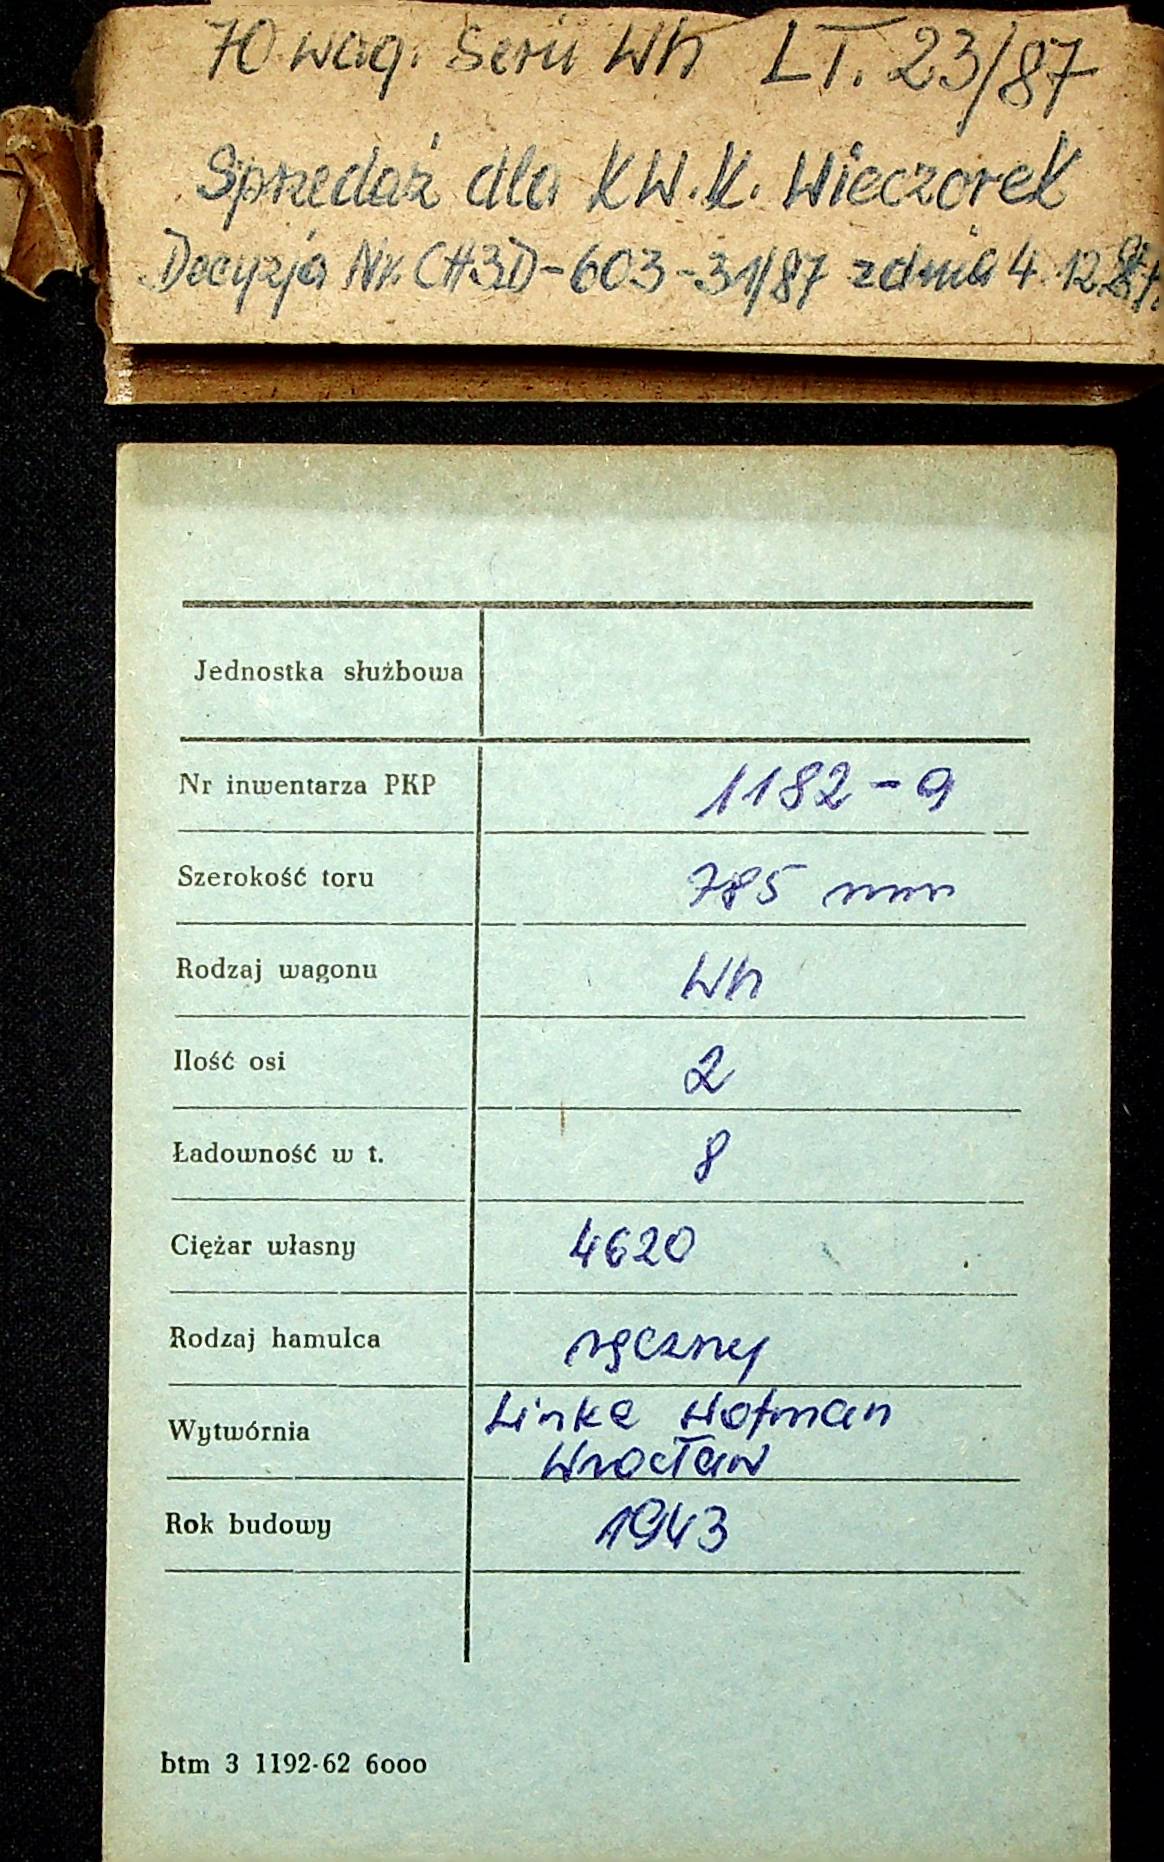 70 wag. Serii Wh LT. 23/87
Sprzedaż dla KW.K. Wieczorek
Decyzja Nr. CH3D-603-31/87 z dnia 4.12.
Jednostka służbowa
Nr inwentarza PKP 1182-9
Szerokość toru 785 mm
Rodzaj wagonu Wh
Ilość osi 2
Ładowność w t. 8
Ciężar własny 4620
Rodzaj hamulca ręczny
Wytwórnia Linke Hofman
Wrocław
Rok budowy 1943
btm 3 1192-62 6000